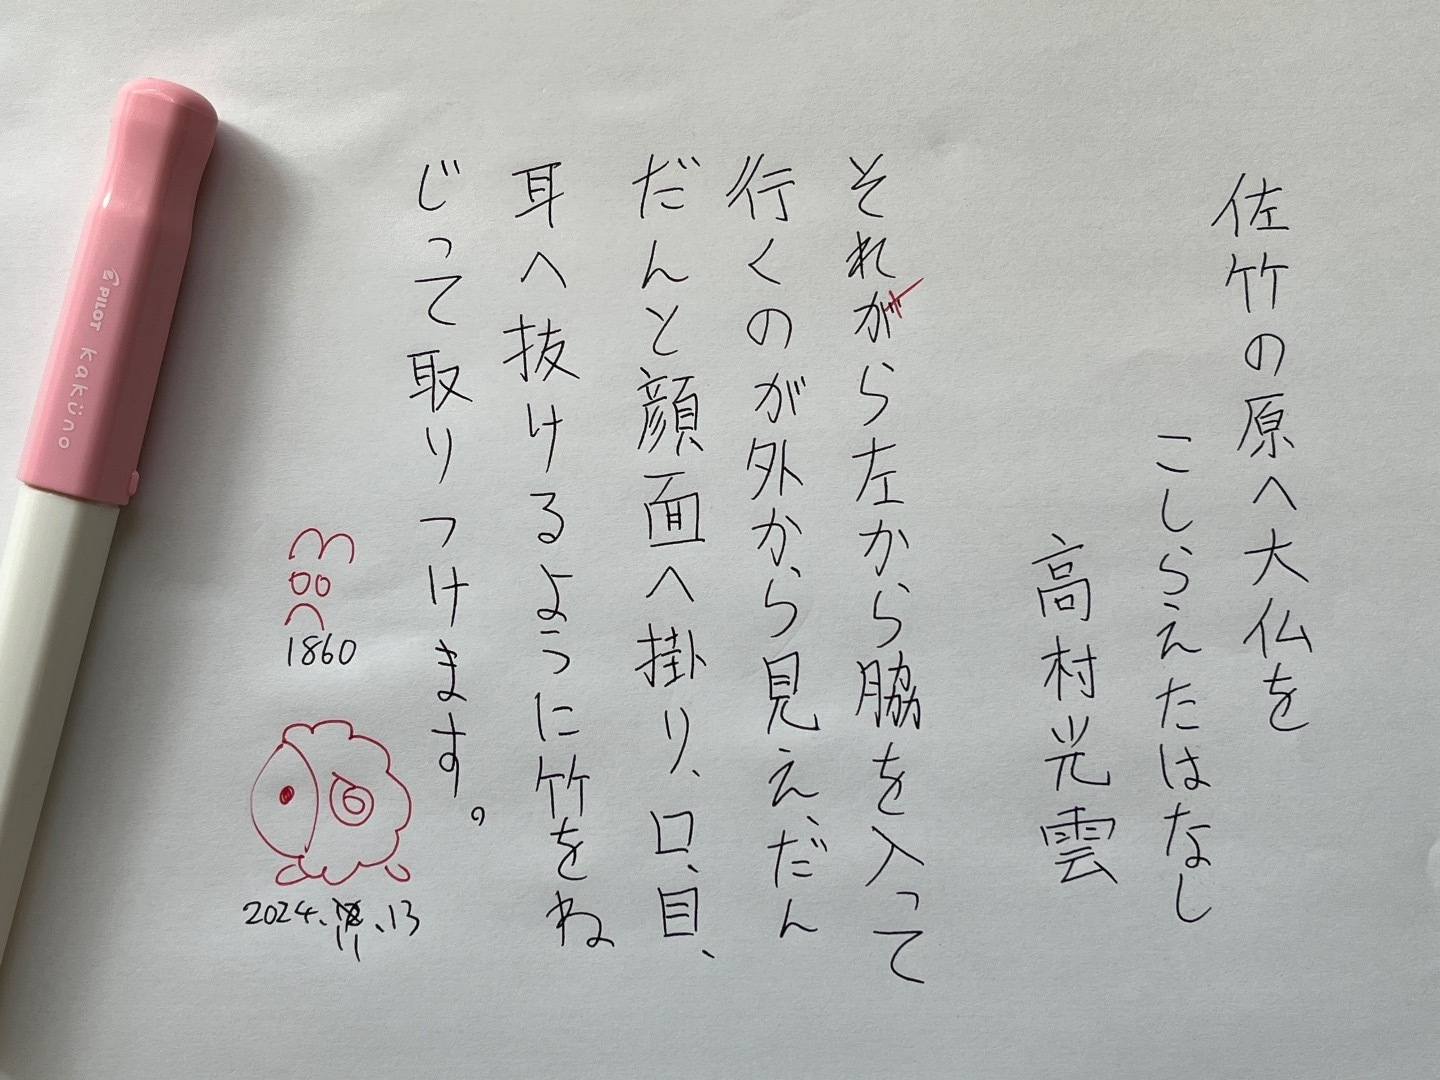 佐竹の原へ大仏を
こしらえたはなし
高村光雲
それから左から脇を入って
行くのが外から見え、だん
だんと顔面へ掛り、口、目、
耳へ抜けるように竹をね
じって取りつけます。
1860
2024.11.13
PILOT kaküno